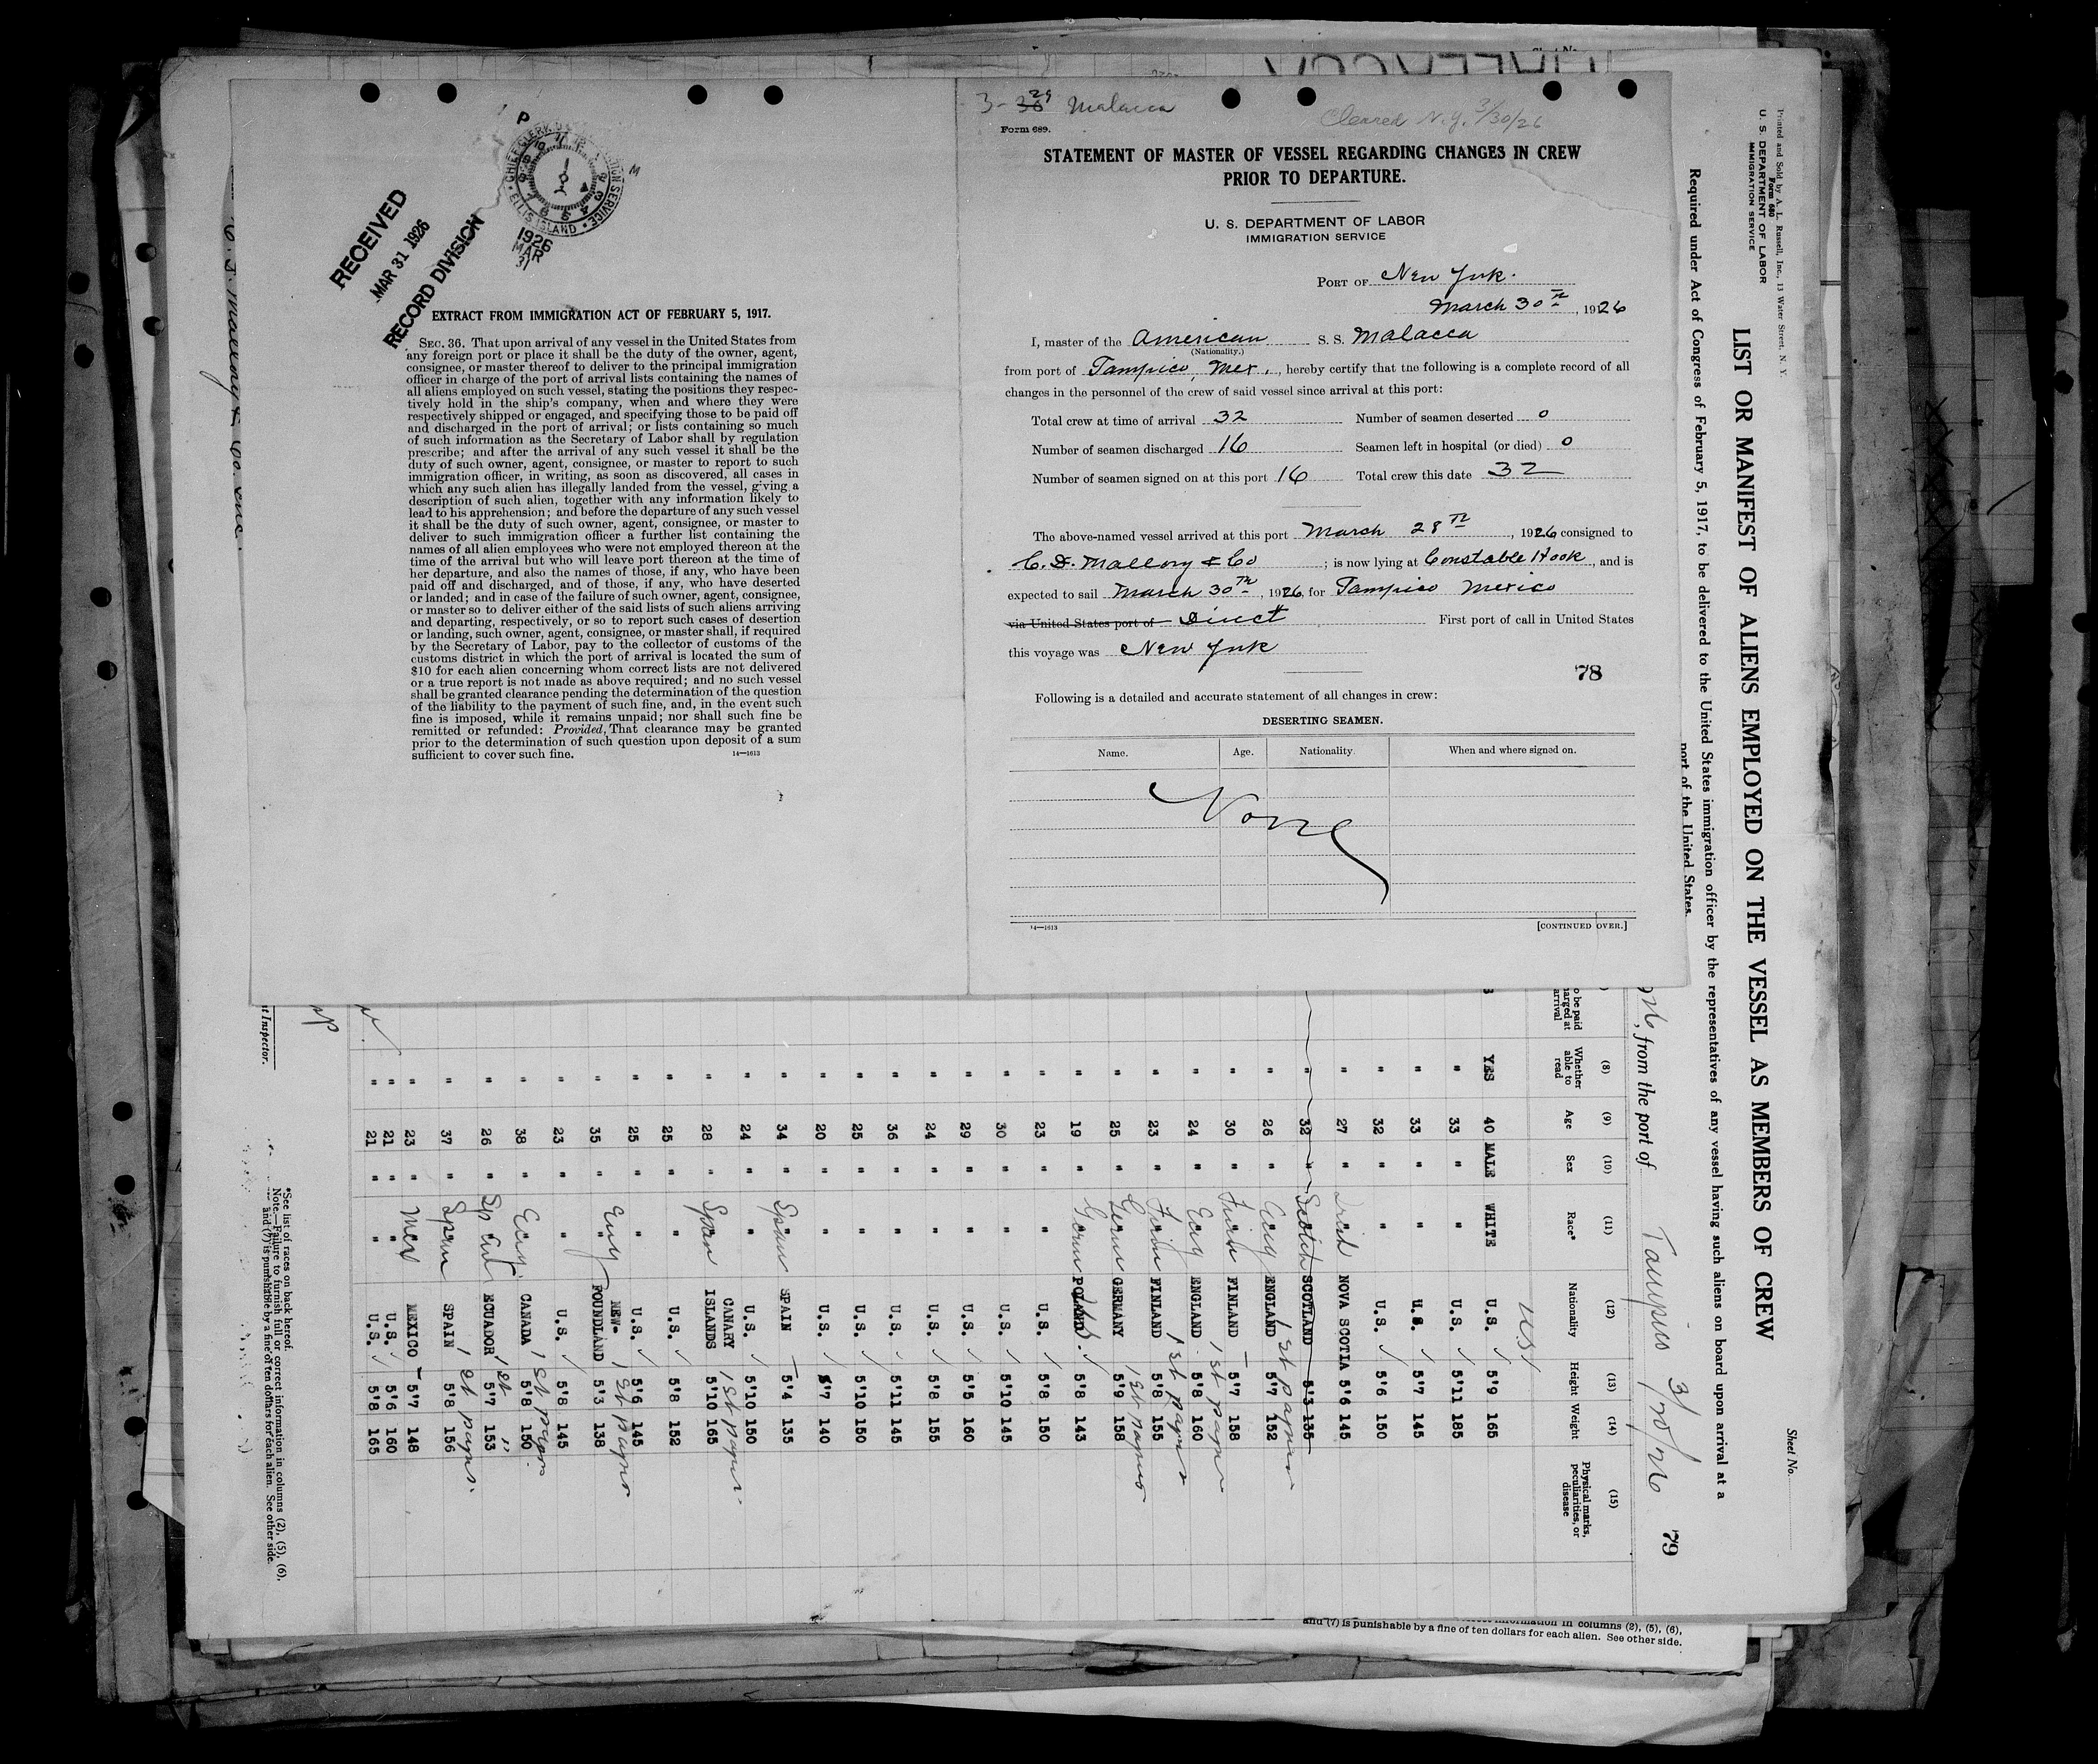 3-30 29 Malacca
Cleared N.Y. 3/30/26
Form 689.
STATEMENT OF MASTER OF VESSEL REGARDING CHANGES IN CREW
PRIOR TO DEPARTURE.
U. S. DEPARTMENT OF LABOR
IMMIGRATION SERVICE
PORT OF New York.
March 30th, 1926
I, master of the American S. S. Malacca
(Nationality.)
from port of Tampico, Mex., hereby certify that the following is a complete record of all
changes in the personnel of the crew of said vessel since arrival at this port:
Total crew at time of arrival 32 Number of seamen deserted 0
Number of seamen discharged 16 Seamen left in hospital (or died) 0
Number of seamen signed on at this port 16 Total crew this date 32
The above-named vessel arrived at this port March 28th, 1926 consigned to
C. D. Mallory & Co; is now lying at Constable Hook, and is
expected to sail March 30th, 1926, for Tampico Mexico
via United States port of Direct First port of call in United States
this voyage was New York
78
Following is a detailed and accurate statement of all changes in crew:
DESERTING SEAMEN.
Name. Age. Nationality. When and where signed on.
None
14—1613
[CONTINUED OVER.]
RECEIVED
MAR 31 1926
RECORD DIVISION
ELLIS ISLAND
1926
MAR
31
P
M
EXTRACT FROM IMMIGRATION ACT OF FEBRUARY 5, 1917.
SEC. 36. That upon arrival of any vessel in the United States from
any foreign port or place it shall be the duty of the owner, agent,
consignee, or master thereof to deliver to the principal immigration
officer in charge of the port of arrival lists containing the names of
all aliens employed on such vessel, stating the positions they respec-
tively hold in the ship's company, when and where they were
respectively shipped or engaged, and specifying those to be paid off
and discharged in the port of arrival; or lists containing so much
of such information as the Secretary of Labor shall by regulation
prescribe; and after the arrival of any such vessel it shall be the
duty of such owner, agent, consignee, or master to report to such
immigration officer, in writing, as soon as discovered, all cases in
which any such alien has illegally landed from the vessel, giving a
description of such alien, together with any information likely to
lead to his apprehension; and before the departure of any such vessel
it shall be the duty of such owner, agent, consignee, or master to
deliver to such immigration officer a further list containing the
names of all alien employees who were not employed thereon at the
time of the arrival but who will leave port thereon at the time of
her departure, and also the names of those, if any, who have been
paid off and discharged, and of those, if any, who have deserted
or landed; and in case of the failure of such owner, agent, consignee,
or master so to deliver either of the said lists of such aliens arriving
and departing, respectively, or so to report such cases of desertion
or landing, such owner, agent, consignee, or master shall, if required
by the Secretary of Labor, pay to the collector of customs of the
customs district in which the port of arrival is located the sum of
$10 for each alien concerning whom correct lists are not delivered
or a true report is not made as above required; and no such vessel
shall be granted clearance pending the determination of the question
of the liability to the payment of such fine, and, in the event such
fine is imposed, while it remains unpaid; nor shall such fine be
remitted or refunded: Provided, That clearance may be granted
prior to the determination of such question upon deposit of a sum
sufficient to cover such fine.
14—1613
Printed and Sold by A. L. Russell, Inc., 13 Water Street, N. Y.
Form 680
U. S. DEPARTMENT OF LABOR
IMMIGRATION SERVICE
Sheet No.
LIST OR MANIFEST OF ALIENS EMPLOYED ON THE VESSEL AS MEMBERS OF CREW
Required under Act of Congress of February 5, 1917, to be delivered to the United States immigration officer by the representatives of any vessel having such aliens on board upon arrival at a
port of the United States
from the port of Tampico 3/20/26
79
(8) (9) (10) (11) (12) (13) (14) (15)
Whether able to read Age Sex Race* Nationality Height Weight Physical marks, peculiarities, or disease
US
YES 40 MALE WHITE U.S. 5'9 165
" 33 " " U.S. 5'11 185
" 33 " " U.S. 5'7 145
" 32 " " U.S. 5'6 150
" 27 " Irish NOVA SCOTIA 5'6 145
" 32 " Scotch SCOTLAND 5'3 135
" 26 " Eng ENGLAND 5'7 152 1st papers
" 30 " Finn FINLAND 5'7 158
" 24 " Eng ENGLAND 5'8 160 1st papers
" 23 " Finn FINLAND 5'8 155 1st papers
" 25 " Germ GERMANY 5'9 158 1st papers
" 19 " Germ POLAND 5'8 143
" 23 " " U.S. 5'8 150
" 30 " " U.S. 5'10 145
" 29 " " U.S. 5'8 160
" 24 " " U.S. 5'8 155
" 36 " " U.S. 5'11 145
" 25 " " U.S. 5'10 150
" 20 " " U.S. 5'7 140
" 34 " Span SPAIN 5'4 135
" 24 " " U.S. 5'10 150
" 28 " Span CANARY ISLANDS 5'10 165 1st papers
" 25 " " U.S. 5'8 152
" 25 " " U.S. 5'6 145
" 35 " Eng NEW-FOUNDLAND 5'3 138 1st papers
" 23 " " U.S. 5'8 145
" 38 " Eng. CANADA 5'8 150 1st papers
" 26 " ECUADOR 5'7 153 1st "
" 37 " Span SPAIN 5'8 156 1st papers.
" 23 " Mex MEXICO 5'7 148
" 21 " " U.S. 5'6 160
" 21 " " U.S. 5'8 165
t Inspector.
*See list of races on back hereof.
Note.—Failure to furnish full or correct information in columns (2), (5), (6),
and (7) is punishable by a fine of ten dollars for each alien. See other side.
information in columns (2), (5), (6),
and (7) is punishable by a fine of ten dollars for each alien. See other side.